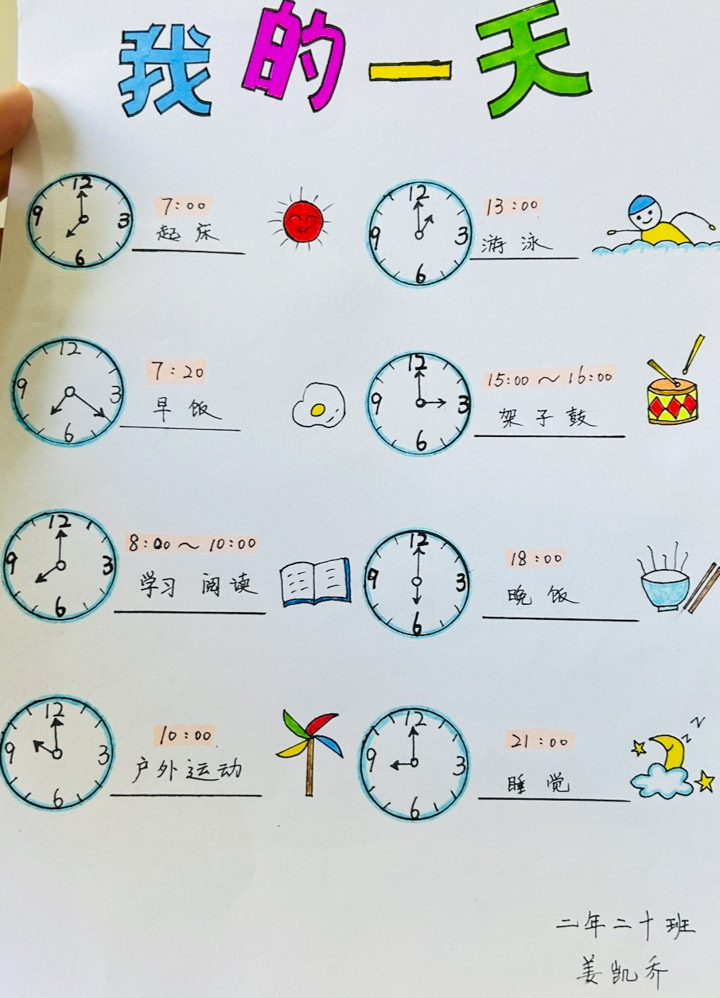 我的一天
12
9
3
6
7:00
起床
12
9
3
6
7:20
早饭
12
9
3
6
8:00～10:00
学习 阅读
12
9
3
6
10:00
户外运动
12
9
3
6
13:00
游泳
12
9
3
6
15:00～16:00
架子鼓
12
9
3
6
18:00
晚饭
12
9
3
6
21:00
睡觉
z z
二年二十班
姜凯乔